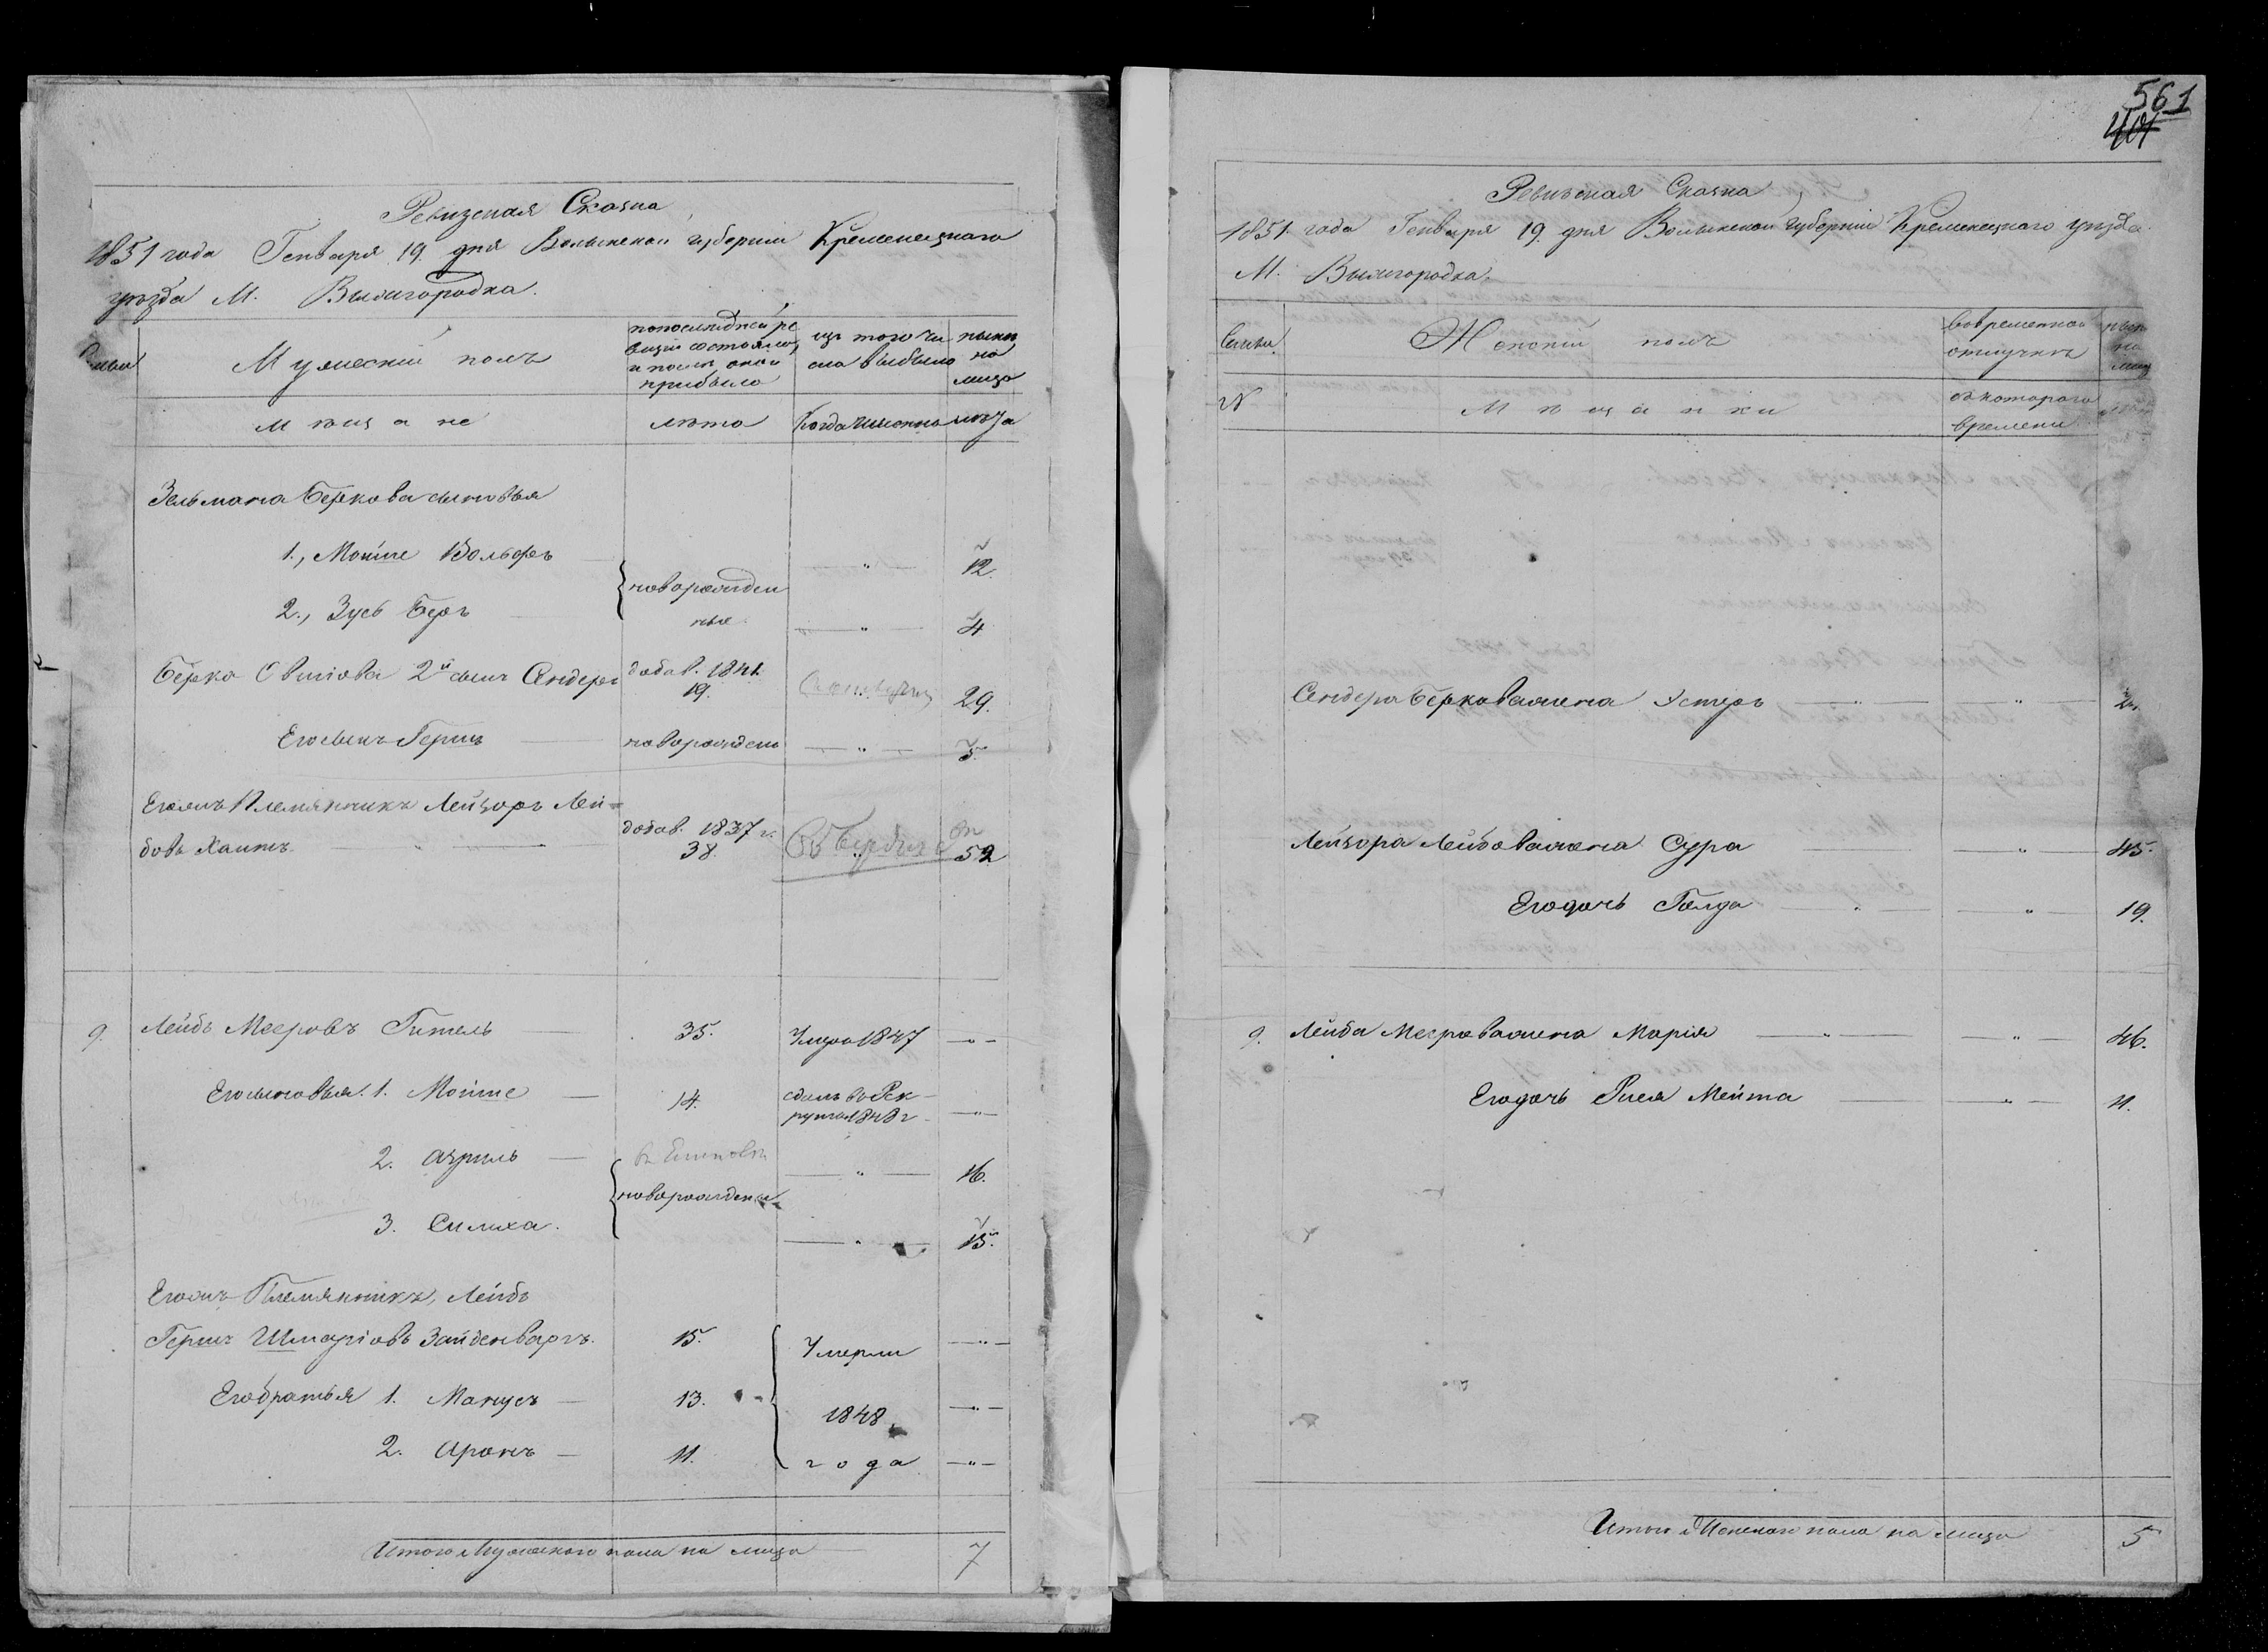 Ревизская Сказка
1851 года Генваря 19 дня Волынской губернии Кременецкаго
уезда М. Вышгородка.
Семьи
Мужеский полъ
по последней ре
визіи состояло,
и после оной
прибыло
изъ того чи
сла выбыло
ныне
на
лицо
Мещане
лета
Когда именно
лета
Зельмана Беркова сыновья
1., Мойше Вольфъ
12.
2., Зусь Беръ
новорожден
ные
4
Берко Овшіова 2й сынъ Сендеръ
добав. 1841
19.
29.
Его сынъ Гершъ
новорожденъ
5.
Его жъ Племянникъ Лейзоръ Лей=
бовъ Хаитъ
добав. 1837 г.
38.
52
9.
Лейбъ Мееровъ Гитель
35.
Умеръ 1847
Его сыновья. 1. Мойше
14.
сданъ въ Рек-
руты 1848 г
2. Азриль
16.
новорожденные
3. Симха.
15.
Его жъ Племянникъ, Лейбъ
Гершъ Шмаріовъ Зайденваргъ.
15.
Умерли
Его братья 1. Манусъ
13.
1848
2. Аронъ
11.
года
Итого Мужескаго пола на лицо
7
561
401
Ревизская Сказка
1851 года Генваря 19. дня Волынской губерніи Кременецкаго уезда
М. Вышгородка.
Семьи.
Женский полъ
Во временной
отлучке
ныне
на
лицо
N
Мещанки
съ котораго
времени
Сендера Беркова жена Эстеръ
Лейзора Лейбова жена Сура
45.
Его дочь Голда
19.
9.
Лейба Меерова жена Марія
46.
Его дочь Рися Мейта
11.
Итого Женскаго пола на лицо
5